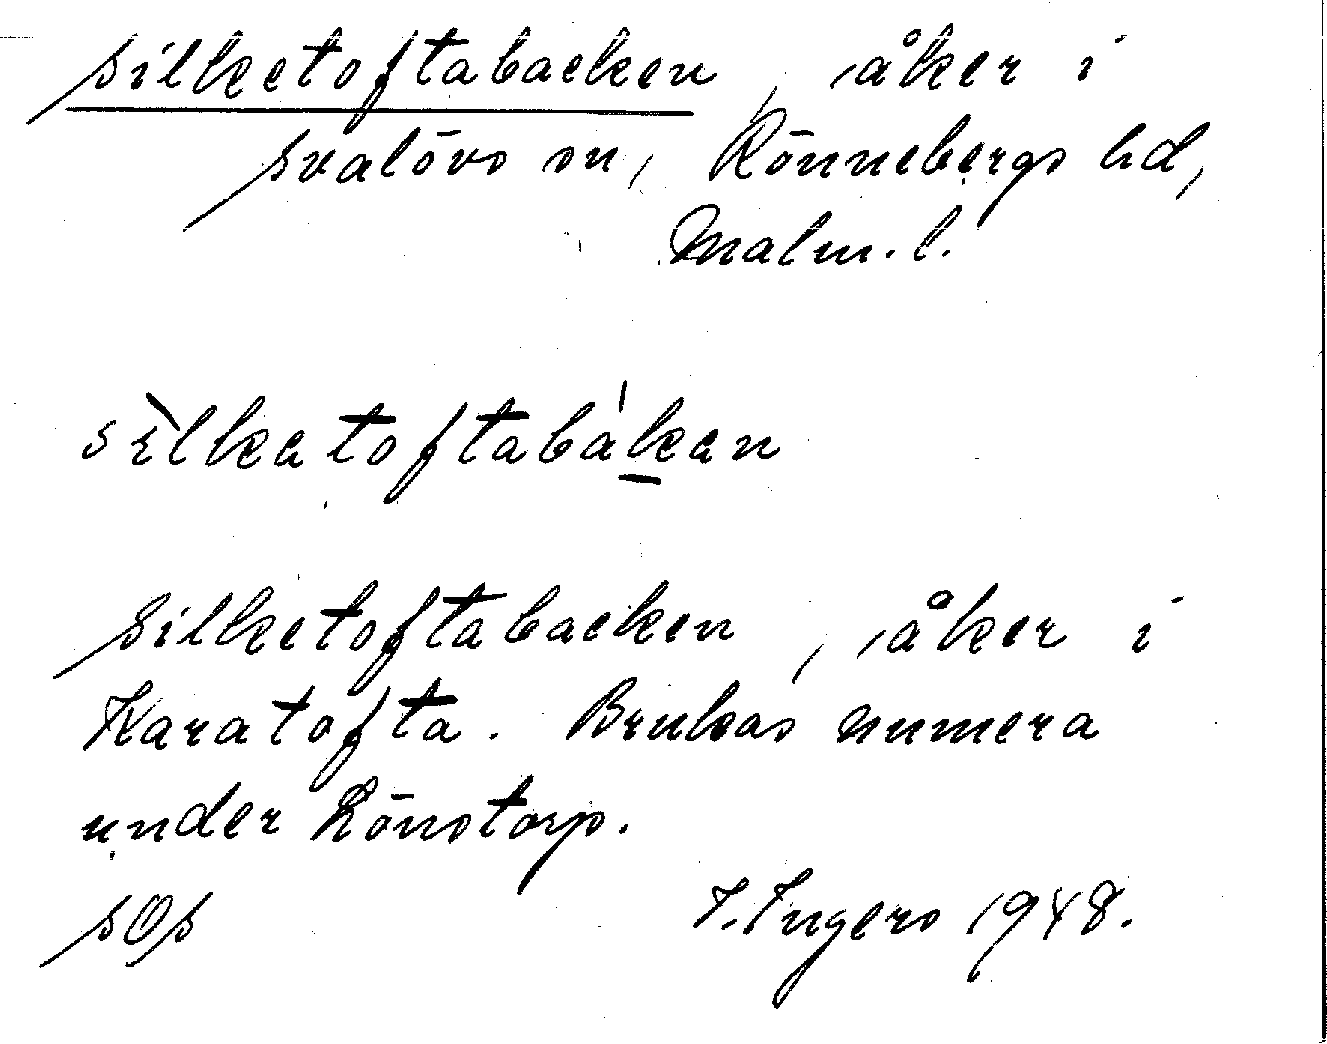 Silketoftabacken, åker i
Svalövs sn, Rönnebergs hd,
Malm. l.
sìlkatoftabákan
Silketoftabacken, åker i
Karatofta. Brukas numera
under Lönstorp.
SOS I. Ingers 1948.